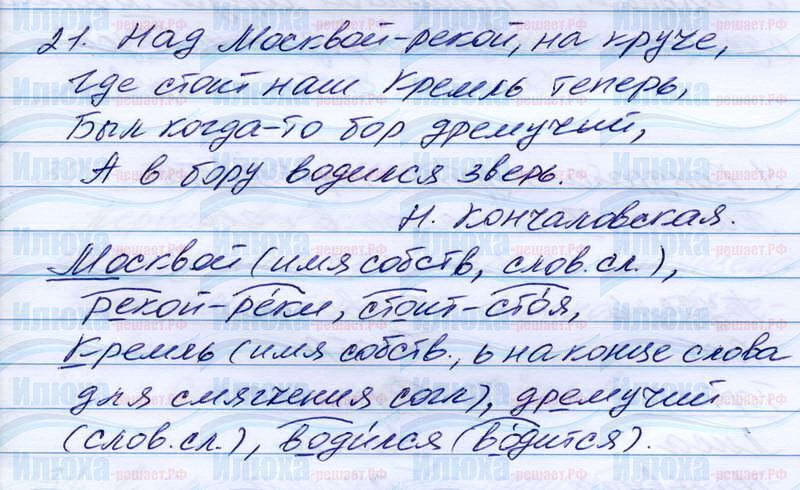 21. Над Москвой-рекой, на круче,
где стоит наш Кремль теперь,
Был когда-то бор дремучий,
А в бору водился зверь.
Н. Кончаловская.
Москвой (имя собств, слов. сл.),
рекой-ре́ки, стоит-сто́я,
Кремль (имя собств., ь на конце слова
для смягчения согл), дремучий
(слов. сл.), води́лся (во́дится).
Илюха-решает.РФ